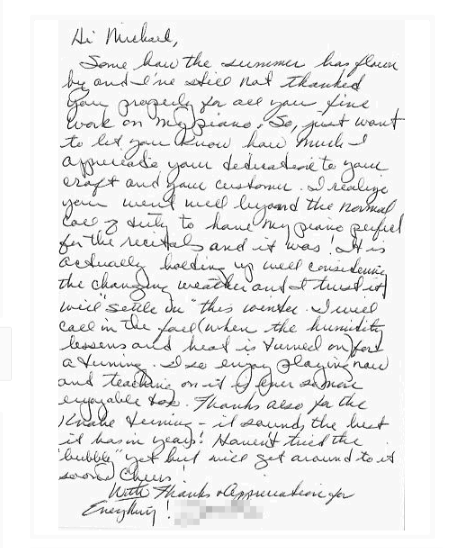 Hi Michael,
Some how the summer has flown
by and I've still not thanked
you properly for all your fine
work on my piano. So, just want
to let you know how much I
appreciate your dedication to your
craft and your customer. I realize
you went well beyond the normal
call of duty to have my piano perfect
for the recitals and it was! It is
actually holding up well considering
the changing weather and I trust it
will "settle in" this winter. I will
call in the fall (when the humidity
lessens and heat is turned on) for
a tuning. I so enjoy playing now
and teaching on it is so more
enjoyable too. Thanks also for the
Knabe tuning - it sounds the best
it has in years! Haven't tried the
"bubble" yet but will get around to it
soon! Cheers!
With Thanks & Appreciation for
Everything!